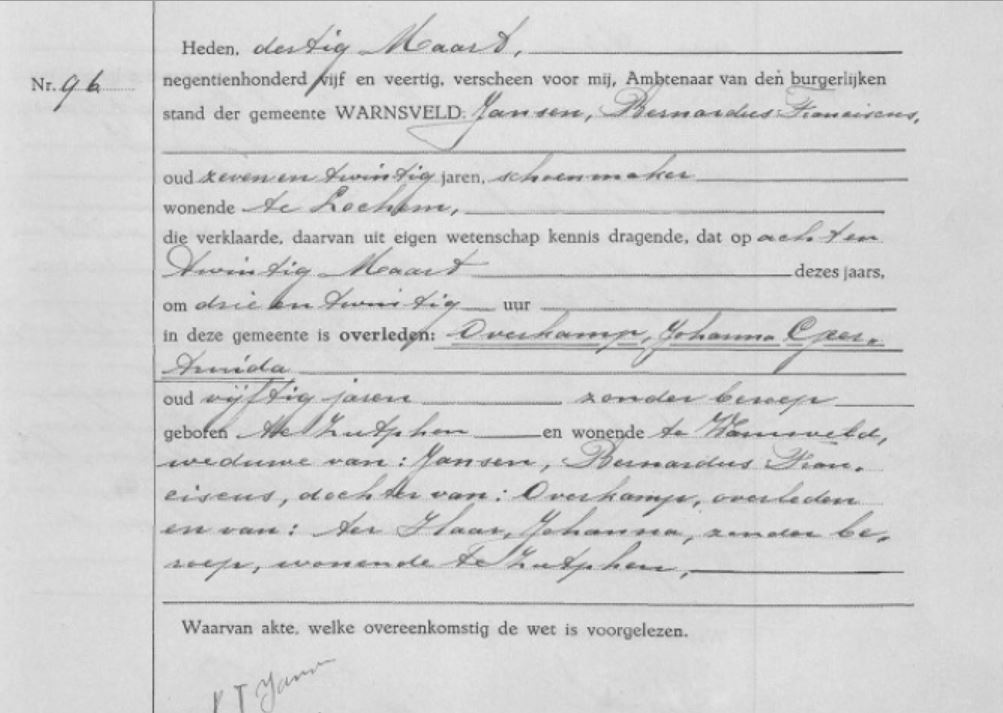 Heden, dertig Maart,
Nr. 96
negentienhonderd vijf en veertig, verscheen voor mij, Ambtenaar van den burgerlijken
stand der gemeente WARNSVELD: Jansen, Bernardus Franciscus,
oud zeven en twintig jaren, schoenmaker
wonende te Lochem,
die verklaarde, daarvan uit eigen wetenschap kennis dragende, dat op acht en
twintig Maart dezes jaars,
om drie en twintig uur
in deze gemeente is overleden: Overkamp, Johanna Ger-
oud vijftig jaren zonder beroep
geboren te Zutphen en wonende te Warnsveld,
weduwe van: Jansen, Bernardus Fran-
ciscus, dochter van: Overkamp, overleden
en van: ter Haar, Johanna, zonder be-
roep, wonende te Zutphen,
Waarvan akte, welke overeenkomstig de wet is voorgelezen.